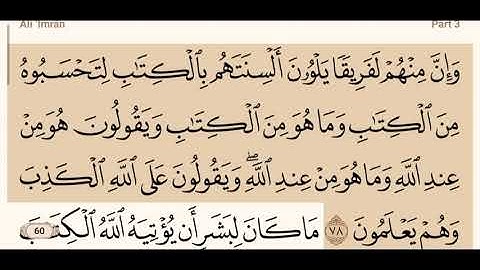 Ali 'Imran Part 3
وَإِنَّ مِنْهُمْ لَفَرِيقًا يَلْوُۥنَ أَلْسِنَتَهُم بِالْكِتَٰبِ لِتَحْسَبُوهُ
مِنَ الْكِتَٰبِ وَمَا هُوَ مِنَ الْكِتَٰبِ وَيَقُولُونَ هُوَ مِنْ
عِندِ اللَّهِ وَمَا هُوَ مِنْ عِندِ اللَّهِ ۖ وَيَقُولُونَ عَلَى اللَّهِ الْكَذِبَ
وَهُمْ يَعْلَمُونَ ٧٨ مَا كَانَ لِبَشَرٍ أَن يُؤْتِيَهُ اللَّهُ الْكِتَٰبَ
60